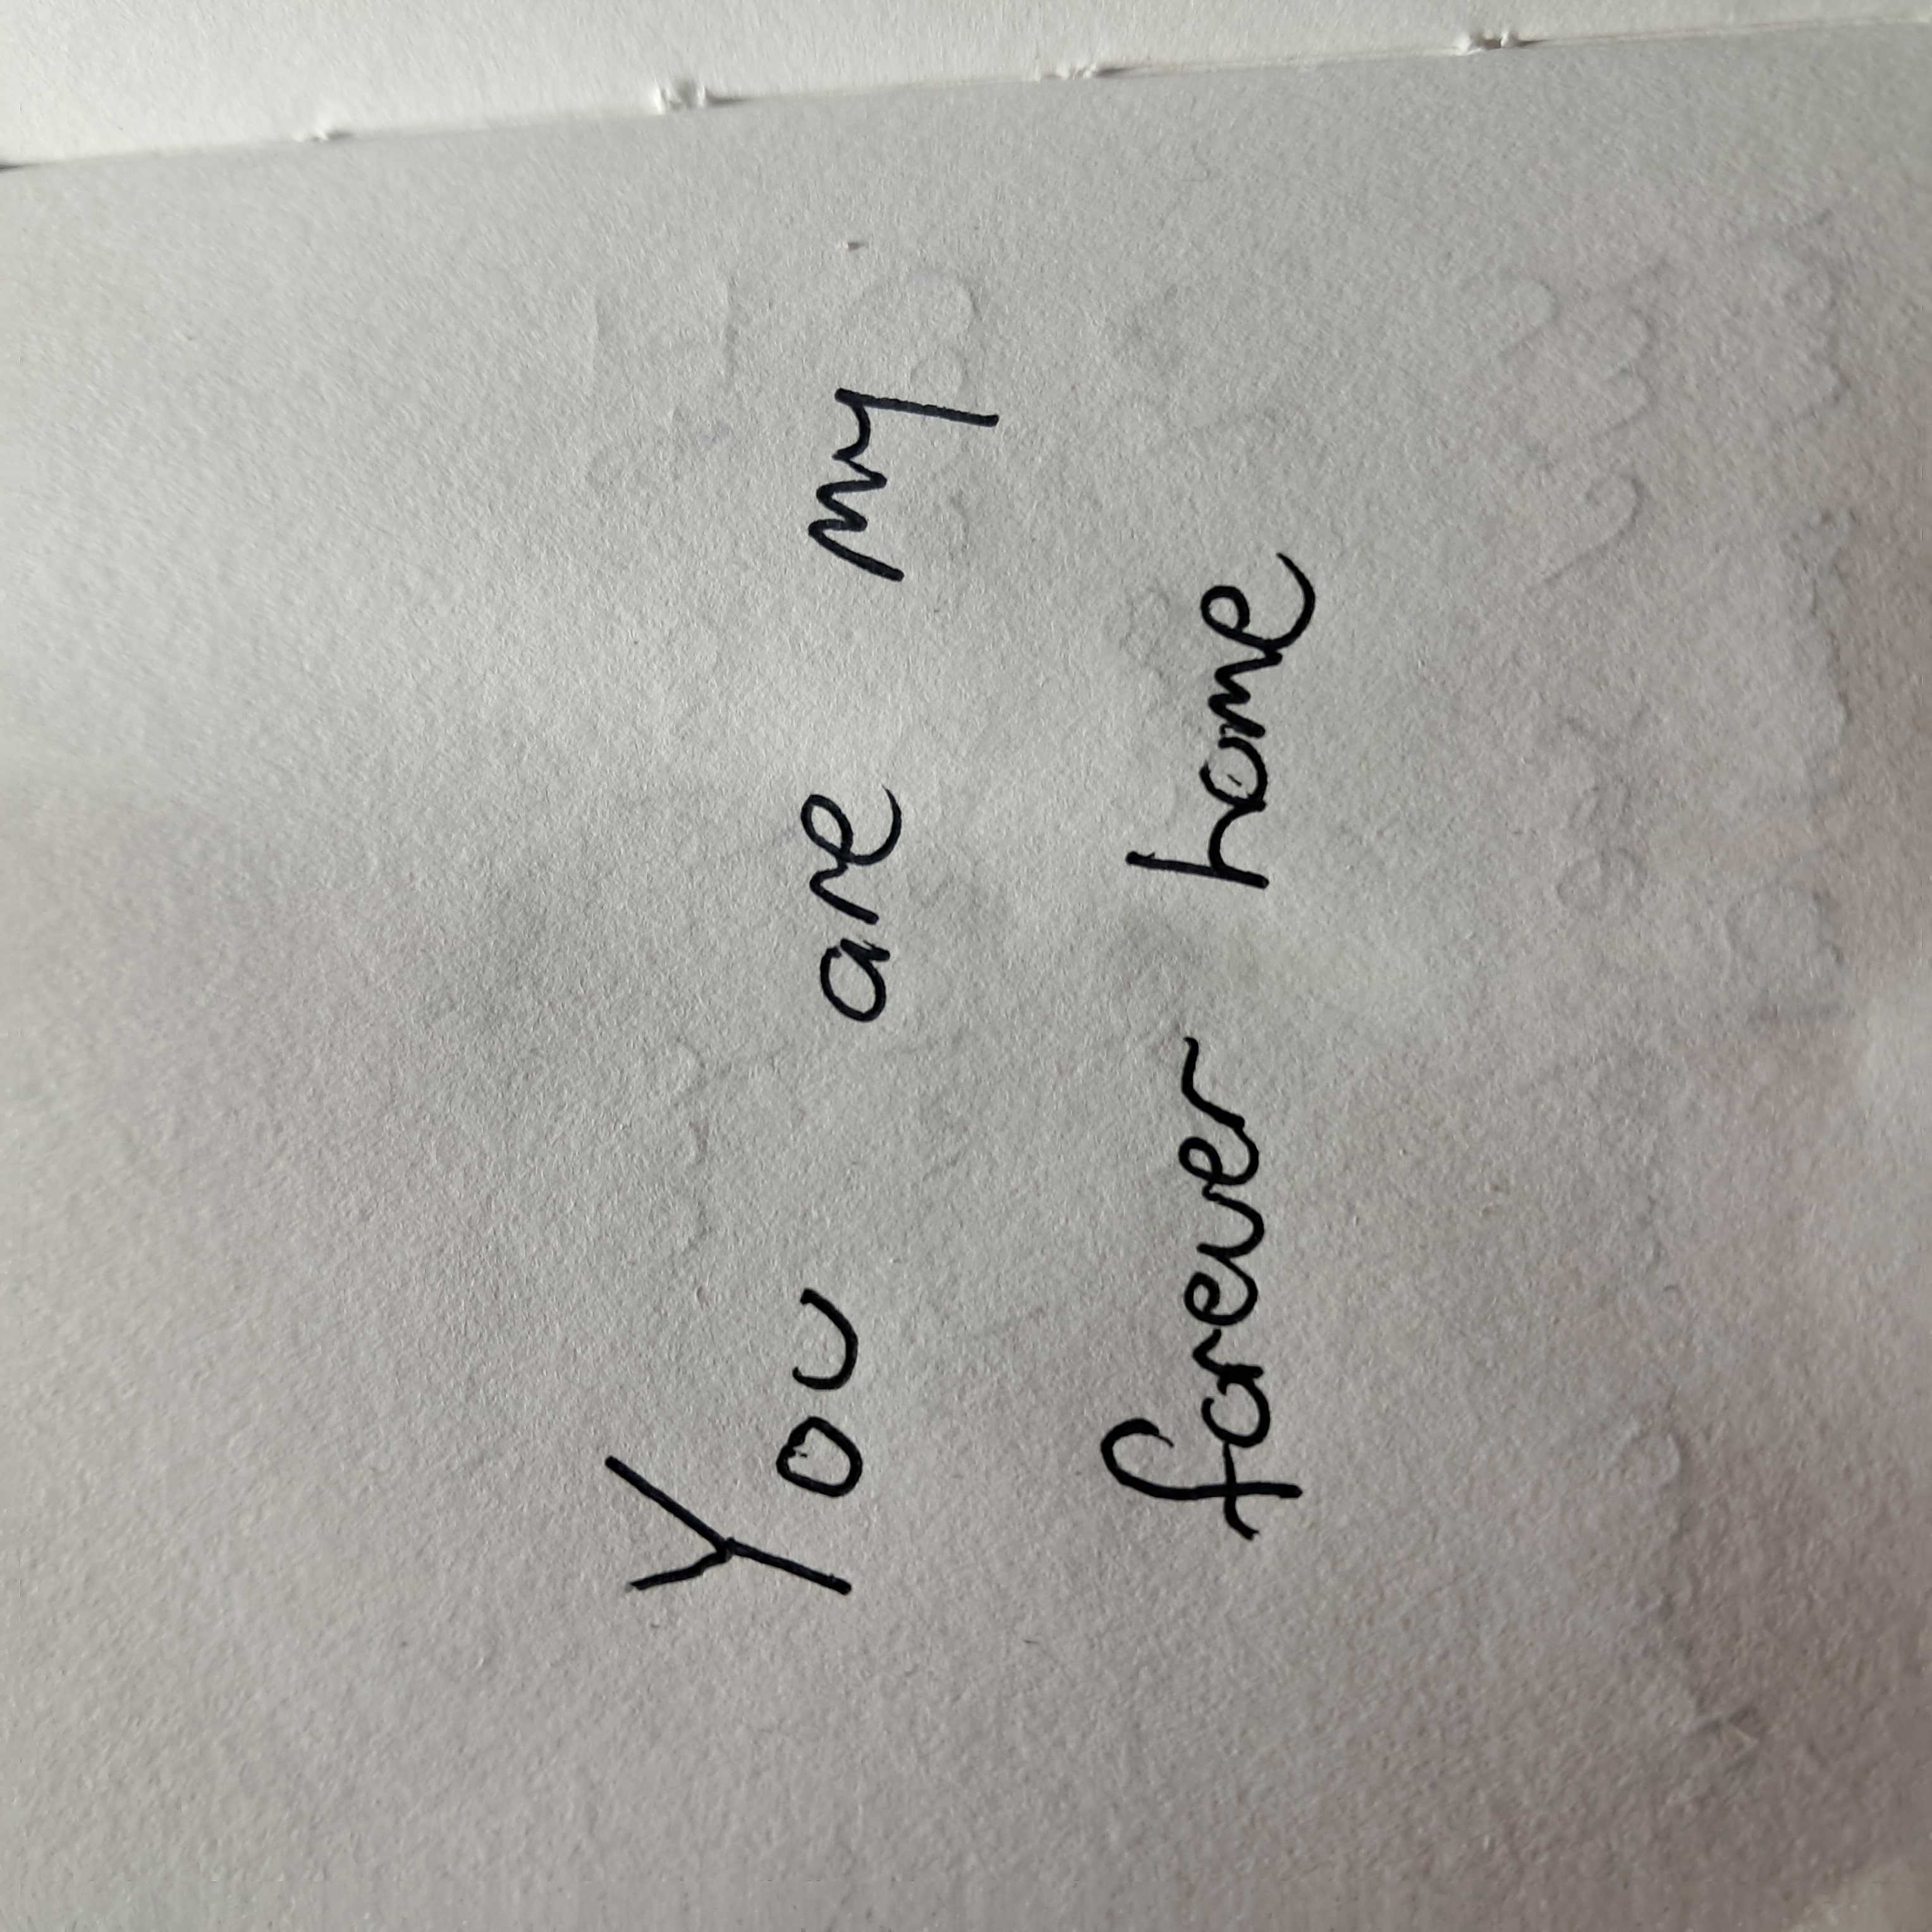 You are my
forever home